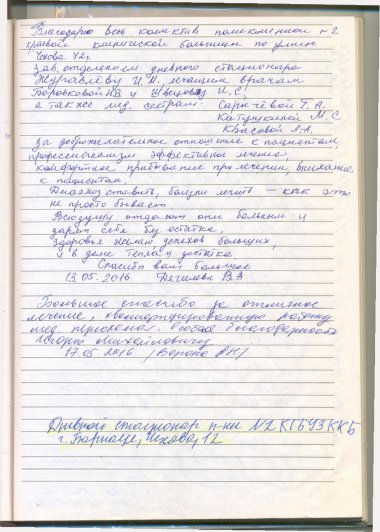 Благодарю весь коллектив поликлиники №2
краевой клинической больницы по улице
Чехова 12.
Зав. отделением дневного стационара
Журавлёву И.Н. лечащим врачам
Боровковой Н.В. и Швецовой И.С.
а также мед. сестрам: Сарычевой Т.А.
Катушкиной М.С.
Квасовой Л.А.
за доброжелательное отношение к пациентам,
профессионализм эффективное лечение,
комфортное пребывание при лечении, внимание
к пациентам
Диагноз ставить, болезни лечить – как это
не просто бывает
Всю душу отдают они больным и
дарят себя без остатка,
Здоровья желаю успехов больших,
и в доме тепла и достатка
Спасибо вам большое
13.05.2016 Дягилева В.А
Большое спасибо за отличное
лечение, квалифицированную работу
мед. персонала. Особая благодарность
Игорю Михайловичу
17.05.2016 /Ворона АН/
Дневной стационар п-ки №2 КГБУЗ ККБ
г. Барнаул, Чехова, 12